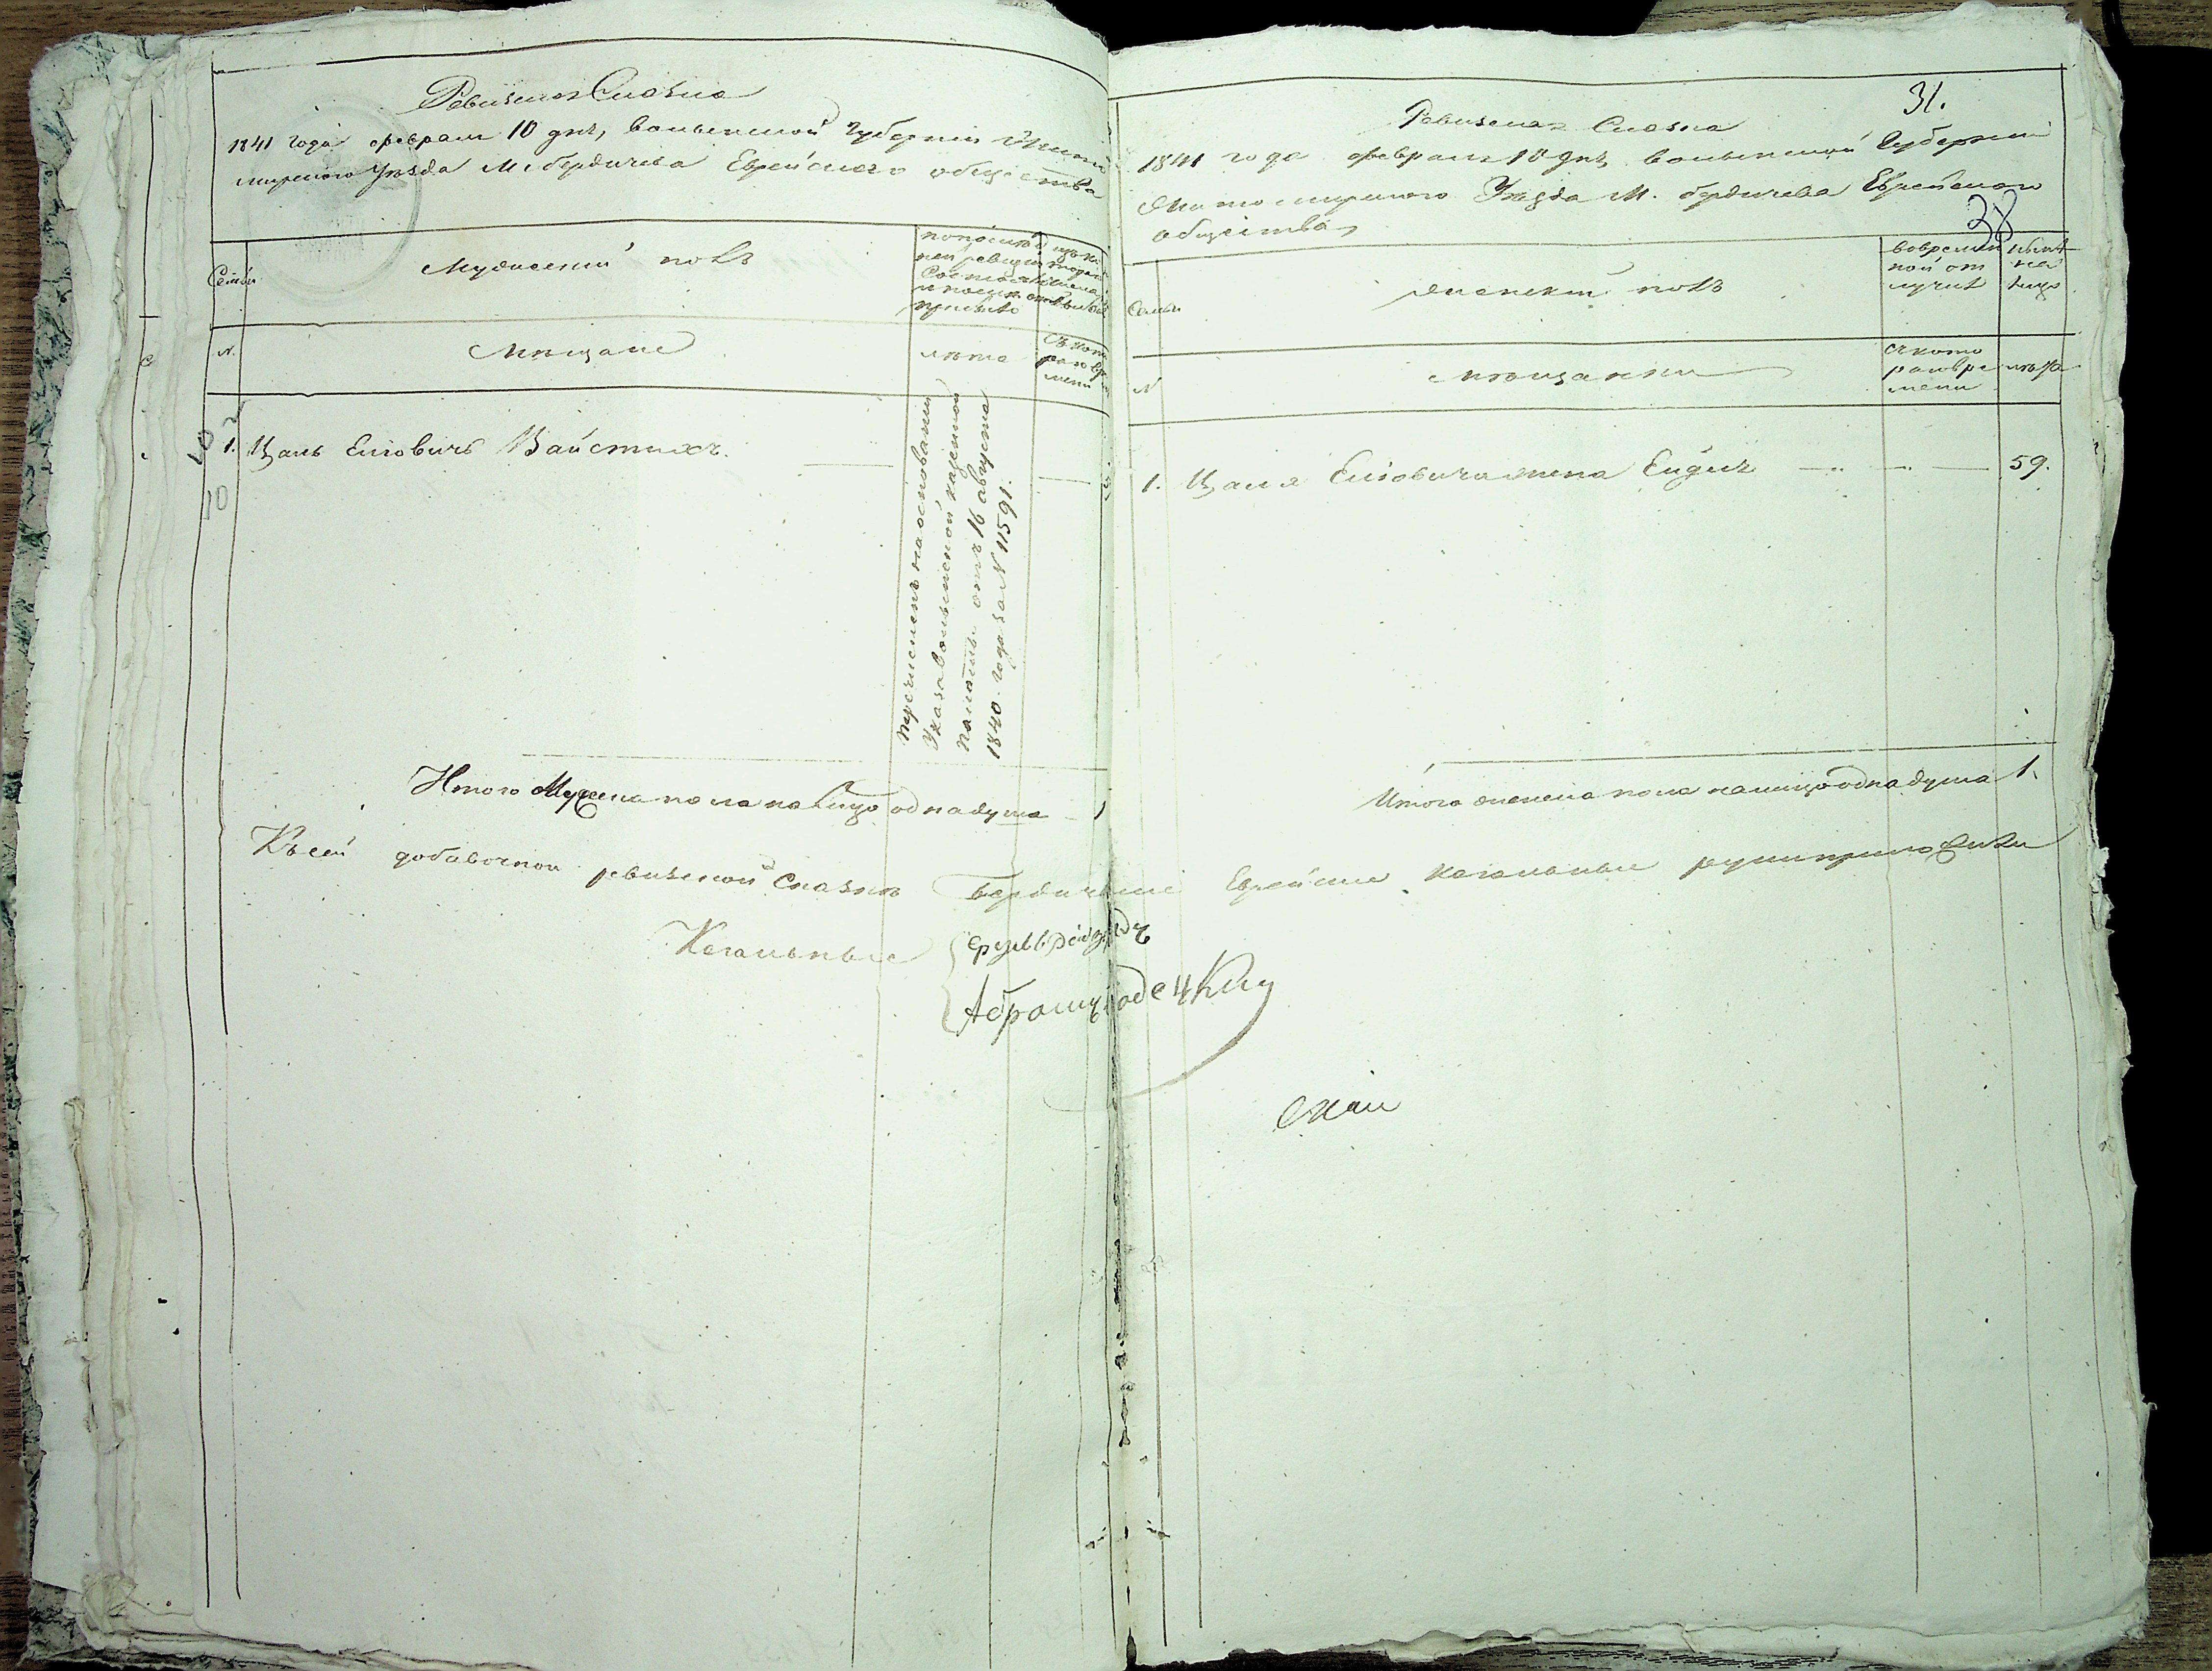 Ревизская Сказка
1841 года февраля 10 дня, волынской Губерніи Жито
мирского Уѣзда М. бердичева Еврейскаго общества
Семьи
Мужескій полъ
по послѣд
ней ревизіи
Состояло
и послѣ оной
прибыло
изъ
того
числа
выбыло
N.
Мѣщане
лѣта
Съ кото
раго вре
мени
1. Цаль Еліовичъ Вайстихъ.
перечисленъ на основаніи
Указа волынской казенной
палаты отъ 16 августа
1840 года за N 11591.
10
Итого Мужеска пола налицо одна душа 1
31.
Ревизская Сказка
1841 года февраля 10 дня волынской Губерніи
Житомирского Уѣзда М. бердичева Еврейскаго
общества,
38
Семьи
Женскій полъ
во времен
ной от
лучкѣ
нынѣ
на
лицо
N
мѣщанки
съ кото
раго вре
мени
лѣта
1. Цаля Еліовича жена Ейдля 59.
Итого женска пола налицо одна душа 1.
Къ сей добавочной ревизской Сказкѣ Бердичевскіе Еврейские кагальные руки приложили
Кагальные
Абрамъ